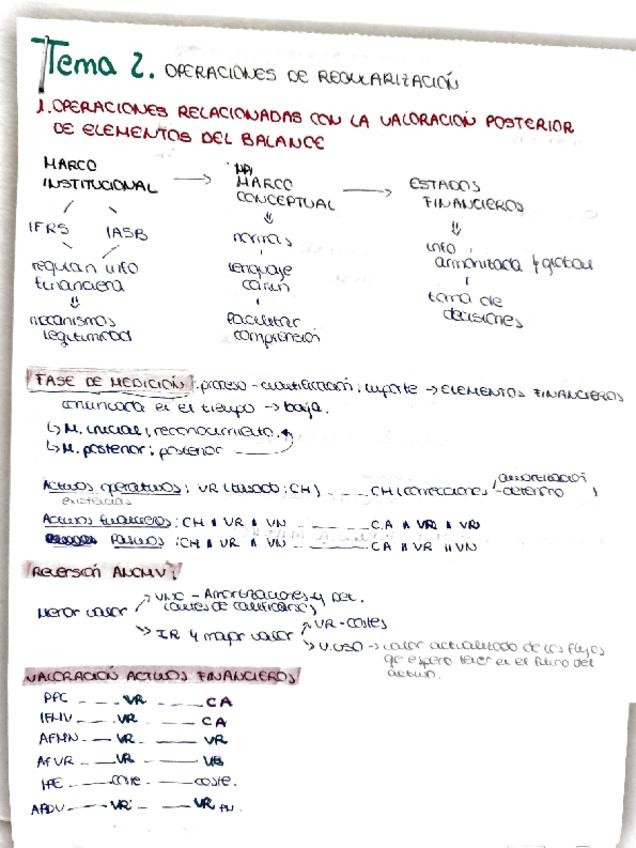 Tema 2. OPERACIONES DE REGULARIZACIÓN
1. OPERACIONES RELACIONADAS CON LA VALORACIÓN POSTERIOR
DE ELEMENTOS DEL BALANCE
MARCO INSTITUCIONAL → MARCO CONCEPTUAL → ESTADOS FINANCIEROS
IFRS IASB
regulan info financiera
⇓
mecanismos legitimidad
⇓
normas
lenguaje común
facilitar comprensión
⇓
info armonizada y global
toma de decisiones
FASE DE MEDICIÓN: proceso - cuantificación: importe → ELEMENTOS FINANCIEROS
en el tiempo → baja.
↳ M. inicial: reconocimiento.
↳ M. posterior: posterior
Activos operativos: VR (basado: CH) - - - CH (correcciones amortización deterioro)
existencias
Activos financieros: CH VR VN - - - CA VR VN
Pasivos: CH VR VN - - - CA VR VN
Reversión ANCMV:
Menor valor
VNC - Amortizaciones y Det. (antes de calificarse)
IR y mayor valor
VR - costes
V. USO → valor actualizado de los flujos que espero tener en el futuro del activo.
VALORACIÓN ACTIVOS FINANCIEROS
PPC - - - VR - - - CA
IFMV - - - VR - - - CA
AFMN - - - VR - - - VR
AFVR - - - VR - - - VR
- - - coste - - - coste.
- - - VR - - - VR PN.